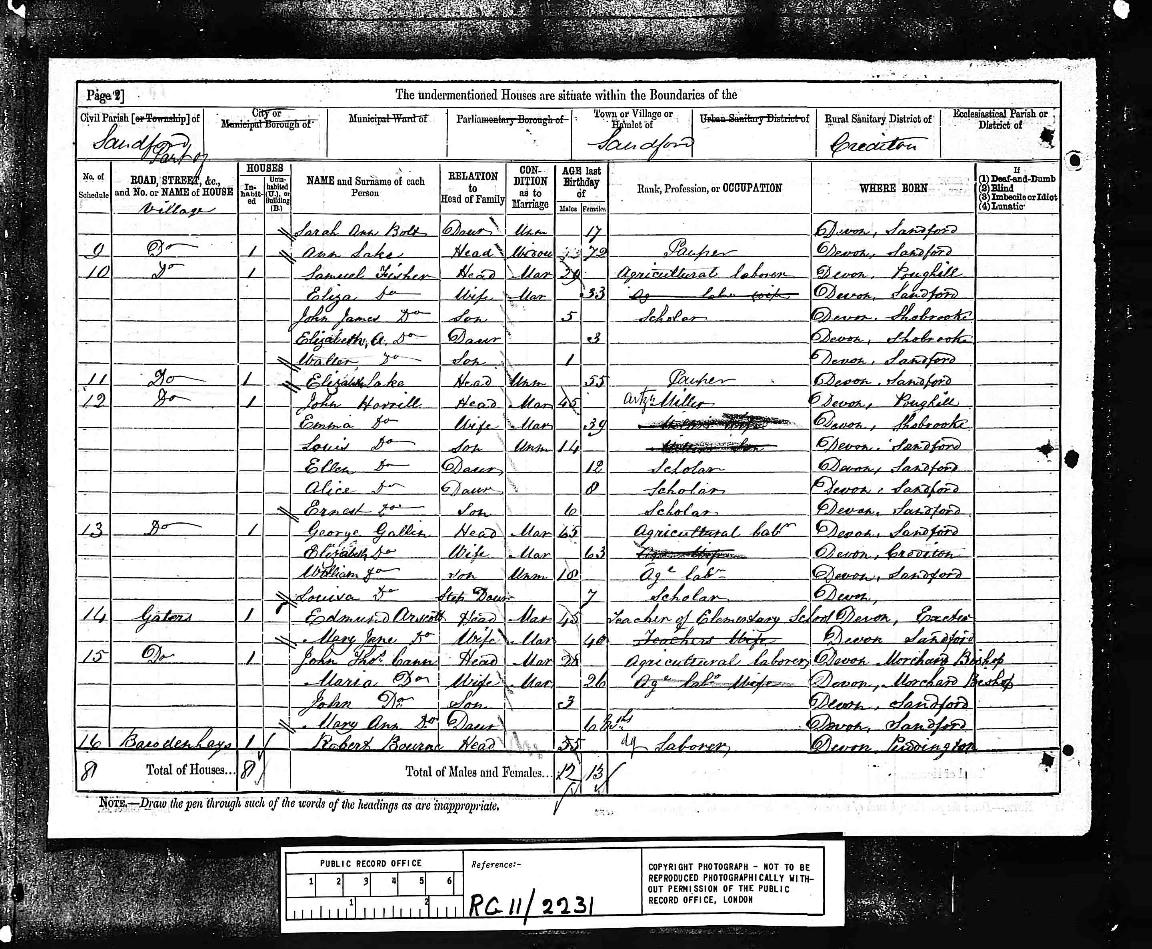 Page 2]
The undermentioned Houses are situate within the Boundaries of the
Civil Parish [or Township] of
City or Municipal Borough of
Municipal Ward of
Parliamentary Borough of
Town or Village or Hamlet of
Urban Sanitary District of
Rural Sanitary District of
Ecclesiastical Parish or District of
Sandford Part of
Sandford
Crediton
No. of Schedule
ROAD, STREET, &c., and No. or NAME of HOUSE
HOUSES
In-habit-ed
Unin-habited (U.), or Building (B.)
NAME and Surname of each Person
RELATION to Head of Family
CON-DITION as to Marriage
AGE last Birthday of
Males
Females
Rank, Profession, or OCCUPATION
WHERE BORN
If
(1) Deaf-and-Dumb
(2) Blind
(3) Imbecile or Idiot
(4) Lunatic
Village
Sarah Ann Bolt Daur Unm 17 Devon, Sandford
9 Do 1 Ann Lake Head Widow 72 Pauper Devon, Sandford
10 Do 1 Samuel Fisher Head Mar Agricultural laborer Devon, Pughill
Eliza Do Wife Mar 33 Devon, Sandford
John James Do Son 5 Scholar Devon, Shobrooke
Elizabeth, A. Do Daur 3 Devon, Shobrooke
Walter Do Son 1 Devon, Sandford
11 Do 1 Elizabeth Lake Head Unm 55 Pauper Devon, Sandford
12 Do 1 John Harrill Head Mar 45 Miller Devon, Pughill
Emma Do Wife Mar 39 Devon, Shobrooke
Louis Do Son Unm 14 Devon, Sandford
Ellen Do Daur 12 Scholar Devon, Sandford
Alice Do Daur 8 Scholar Devon, Sandford
Ernest Do Son 6 Scholar Devon, Sandford
13 Do 1 George Gallin Head Mar 65 Agricultural labr Devon, Sandford
Elizabeth Do Wife Mar 63 Devon, Crediton
William Do Son Unm 18 Agl labr Devon, Sandford
Louisa Do Step Daur 7 Scholar Devon,
14 Gaters 1 Edmund Arscott Head Mar 45 Teacher of Elementary School Devon, Exeter
Mary Jane Do Wife Mar 40 Teachers Wife Devon Sandford
15 Do 1 John Thos Cann Head Mar Agricultural laborer Devon Morchard Bishop
Maria Do Wife Mar 26 Agl labr Wife Devon, Morchard Bishop
John Do Son 3 Devon, Sandford
Mary Ann Do Daur 6 Mths Devon, Sandford
16 1 Robert Bourne Head 55 Ag Laborer, Devon Puddington
8 Total of Houses... 8 Total of Males and Females... 12 13
NOTE.—Draw the pen through such of the words of the headings as are inappropriate.
PUBLIC RECORD OFFICE
1 2 3 4 5 6
1 2
Reference:-
RG 11/2231
COPYRIGHT PHOTOGRAPH - NOT TO BE
REPRODUCED PHOTOGRAPHICALLY WITH-
OUT PERMISSION OF THE PUBLIC
RECORD OFFICE, LONDON